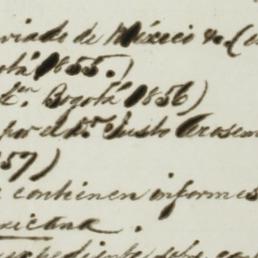 viado de México &c (
otá 1855.)
Bogotá 1856)
por el Dr. Justo Arosem
57)
contienen informes
xicana.
expediente sobre